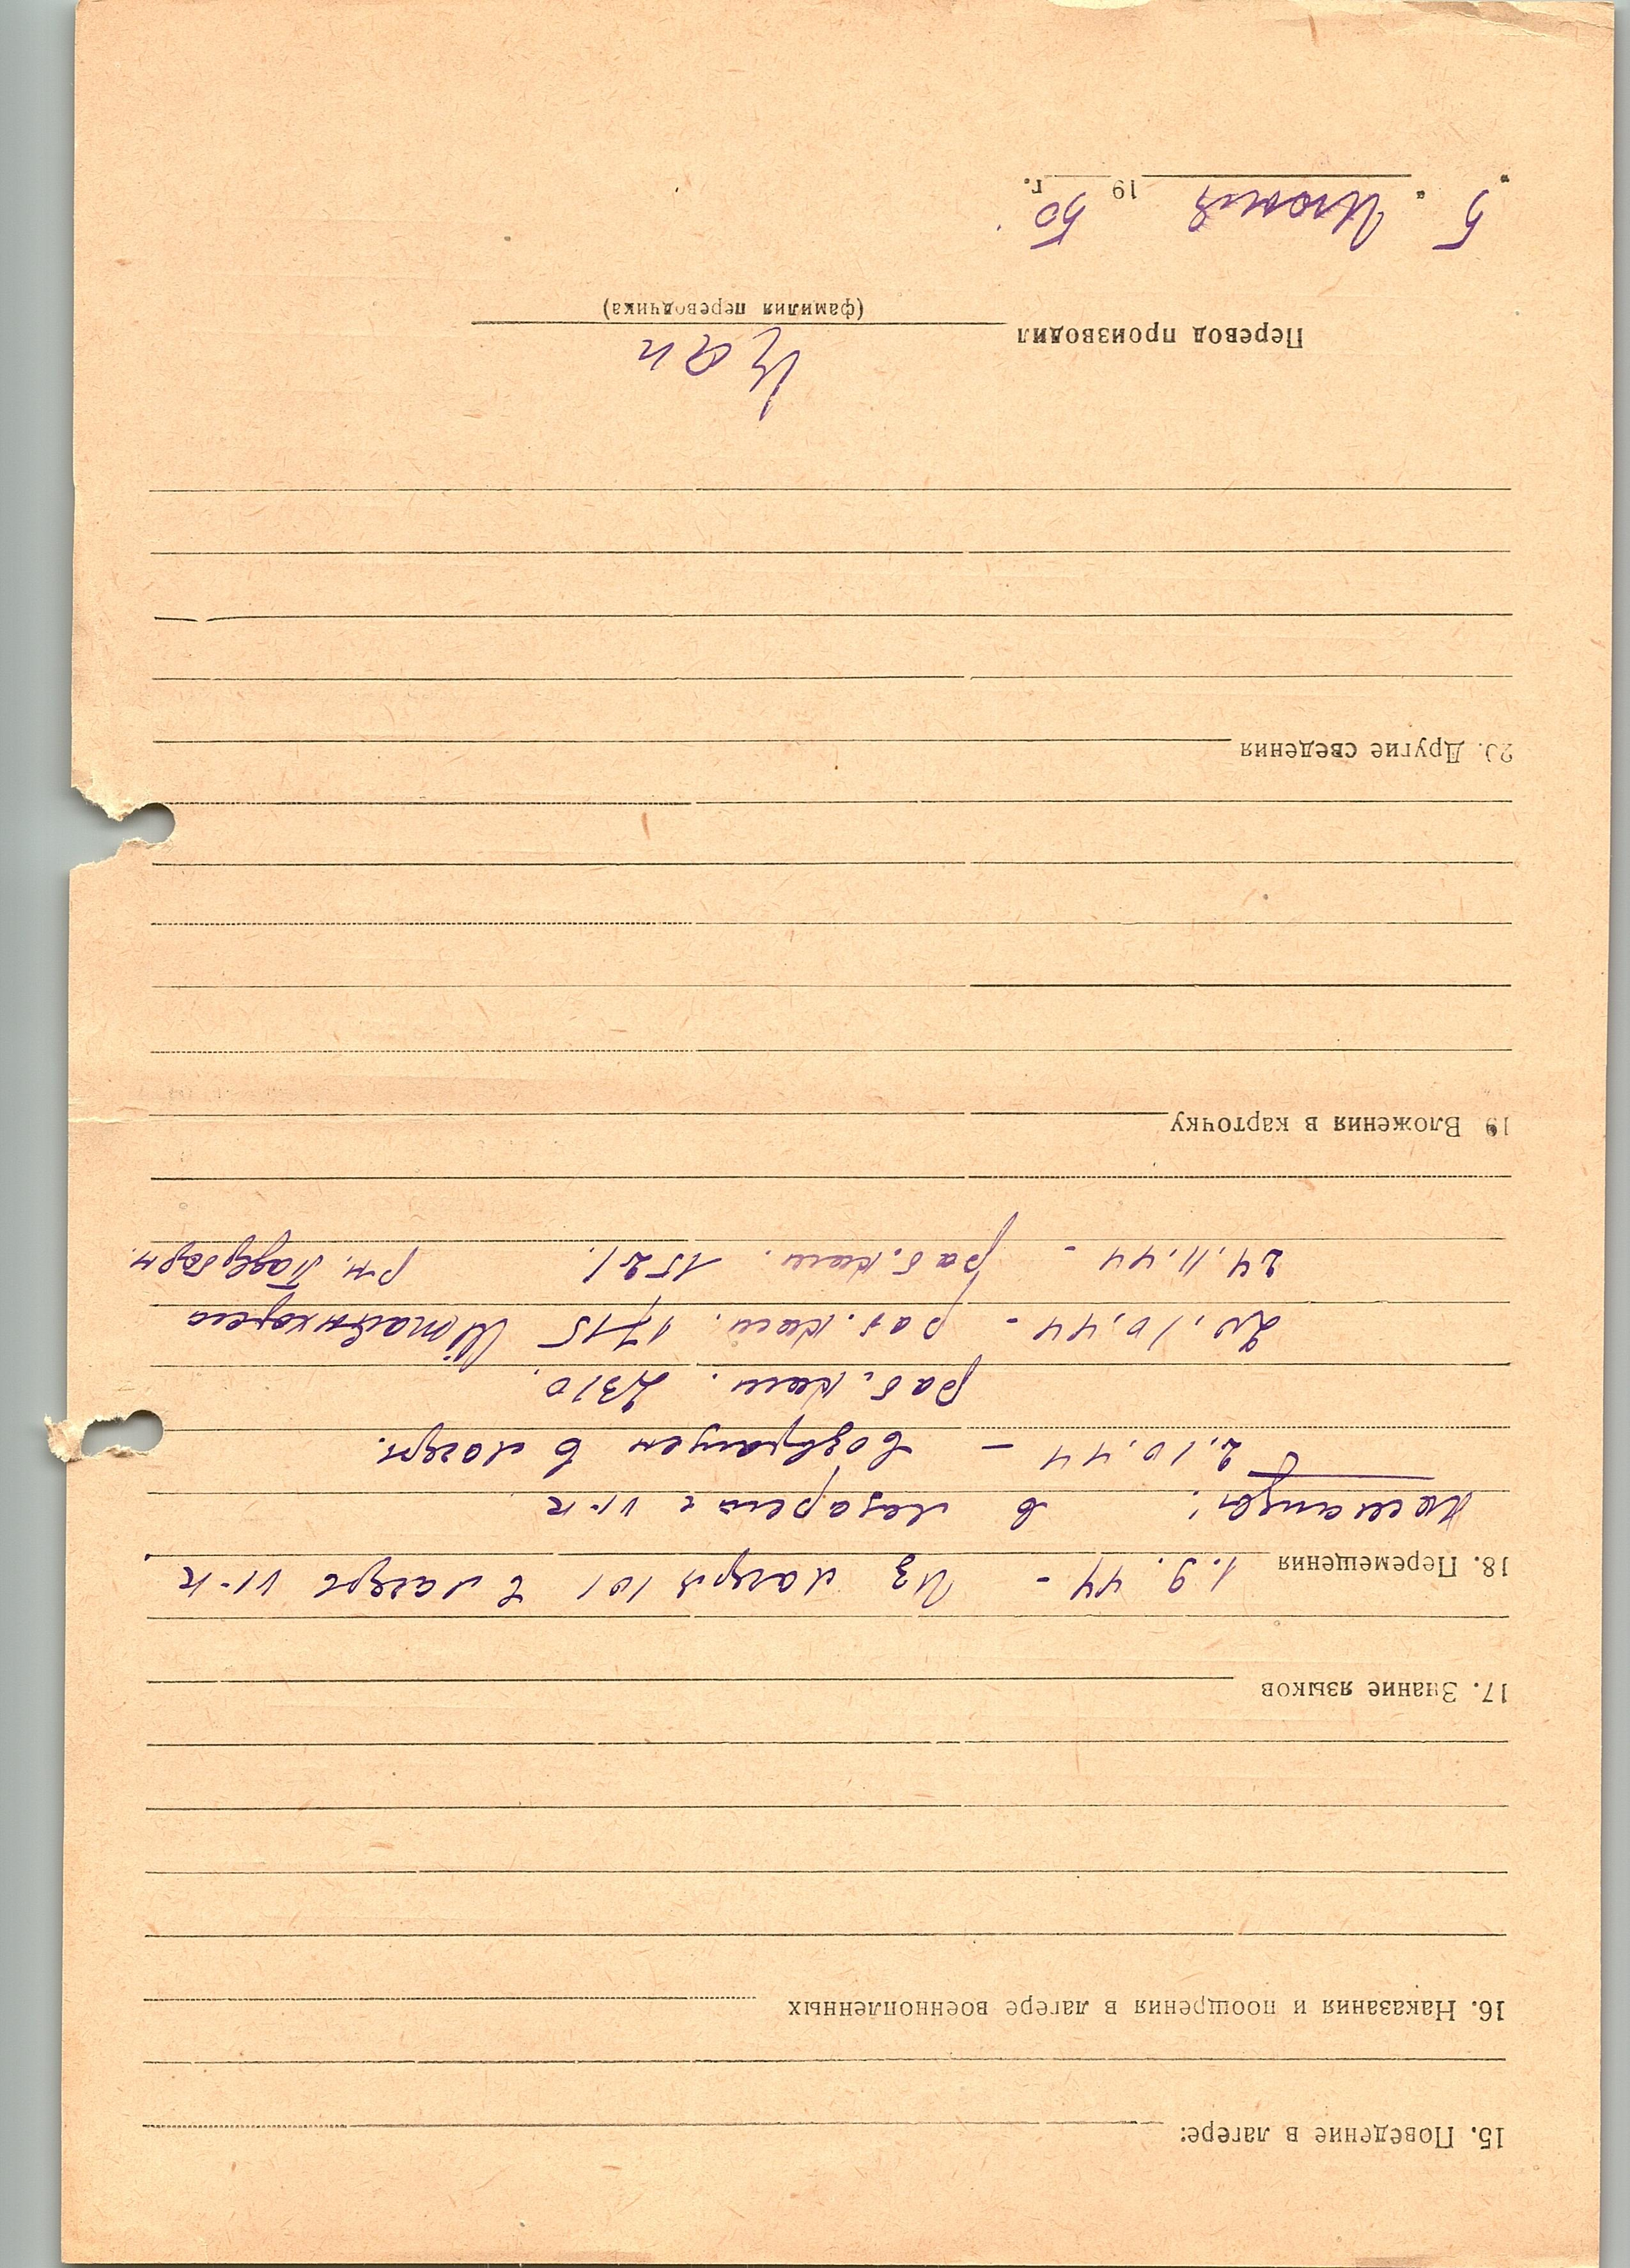 15. Поведение в лагере:
16. Наказания и поощрения в лагере военнопленных
17. Знание языков
18. Перемещения 1.9.44 - Из лагеря 101 в лагерь VI-К
команды: в лазарет VI-К
2.10.44 - возвращен в лагерь.
раб. ком. 2310.
20.10.44 - раб. ком. 1715
24.11.44 - раб. ком. 1521.
19 Вложения в карточку
20. Другие сведения
Перевод производил Кан
(фамилия переводчика)
"5" Июня 1950 г.